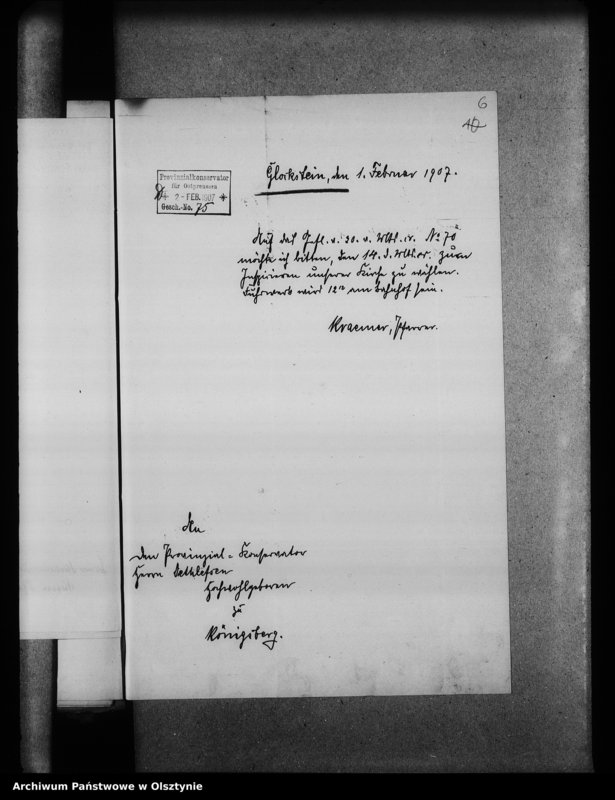 6
42
Glockstein, den 1. Februar 1907.
Provinzialkonservator
für Ostpreussen
2 - FEB. 1907
Gesch.-No. 75
Auf das Gefl. v. 30. v. Mts. cr. No 70
möchte ich bitten, den 14. d. Mts. cr. zum
Inspizieren unserer Kirche zu wählen.
Fuhrwerk wird 12 am Bahnhof sein.
Kraemer, Pfarrer.
An
den Provinzial-Konservator
Herrn Dethlefsen
Hochwohlgeboren
zu
Königsberg.
Archiwum Państwowe w Olsztynie